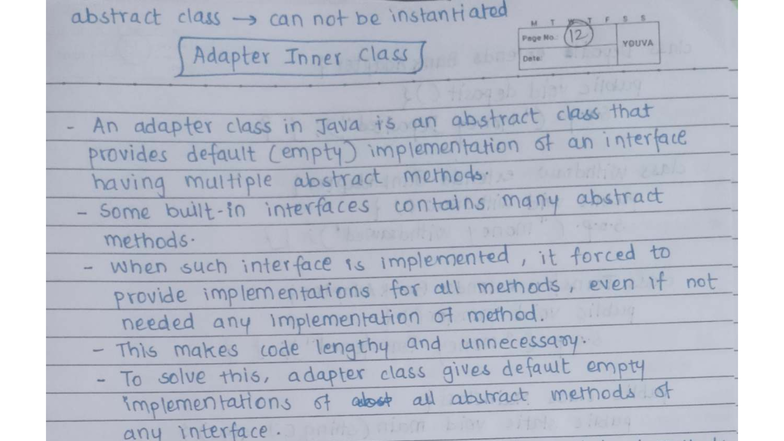 abstract class → can not be instantiated
M T W T F S S
Page No.: 12
YOUVA
Date:
Adapter Inner Class
- An adapter class in Java is an abstract class that
provides default (empty) implementation of an interface
having multiple abstract methods.
- Some built-in interfaces contains many abstract
methods.
- When such interface is implemented, it forced to
provide implementations for all methods, even if not
needed any implementation of method.
- This makes code lengthy and unnecessary.
- To solve this, adapter class gives default empty
implementations of all abstract methods of
any interface.